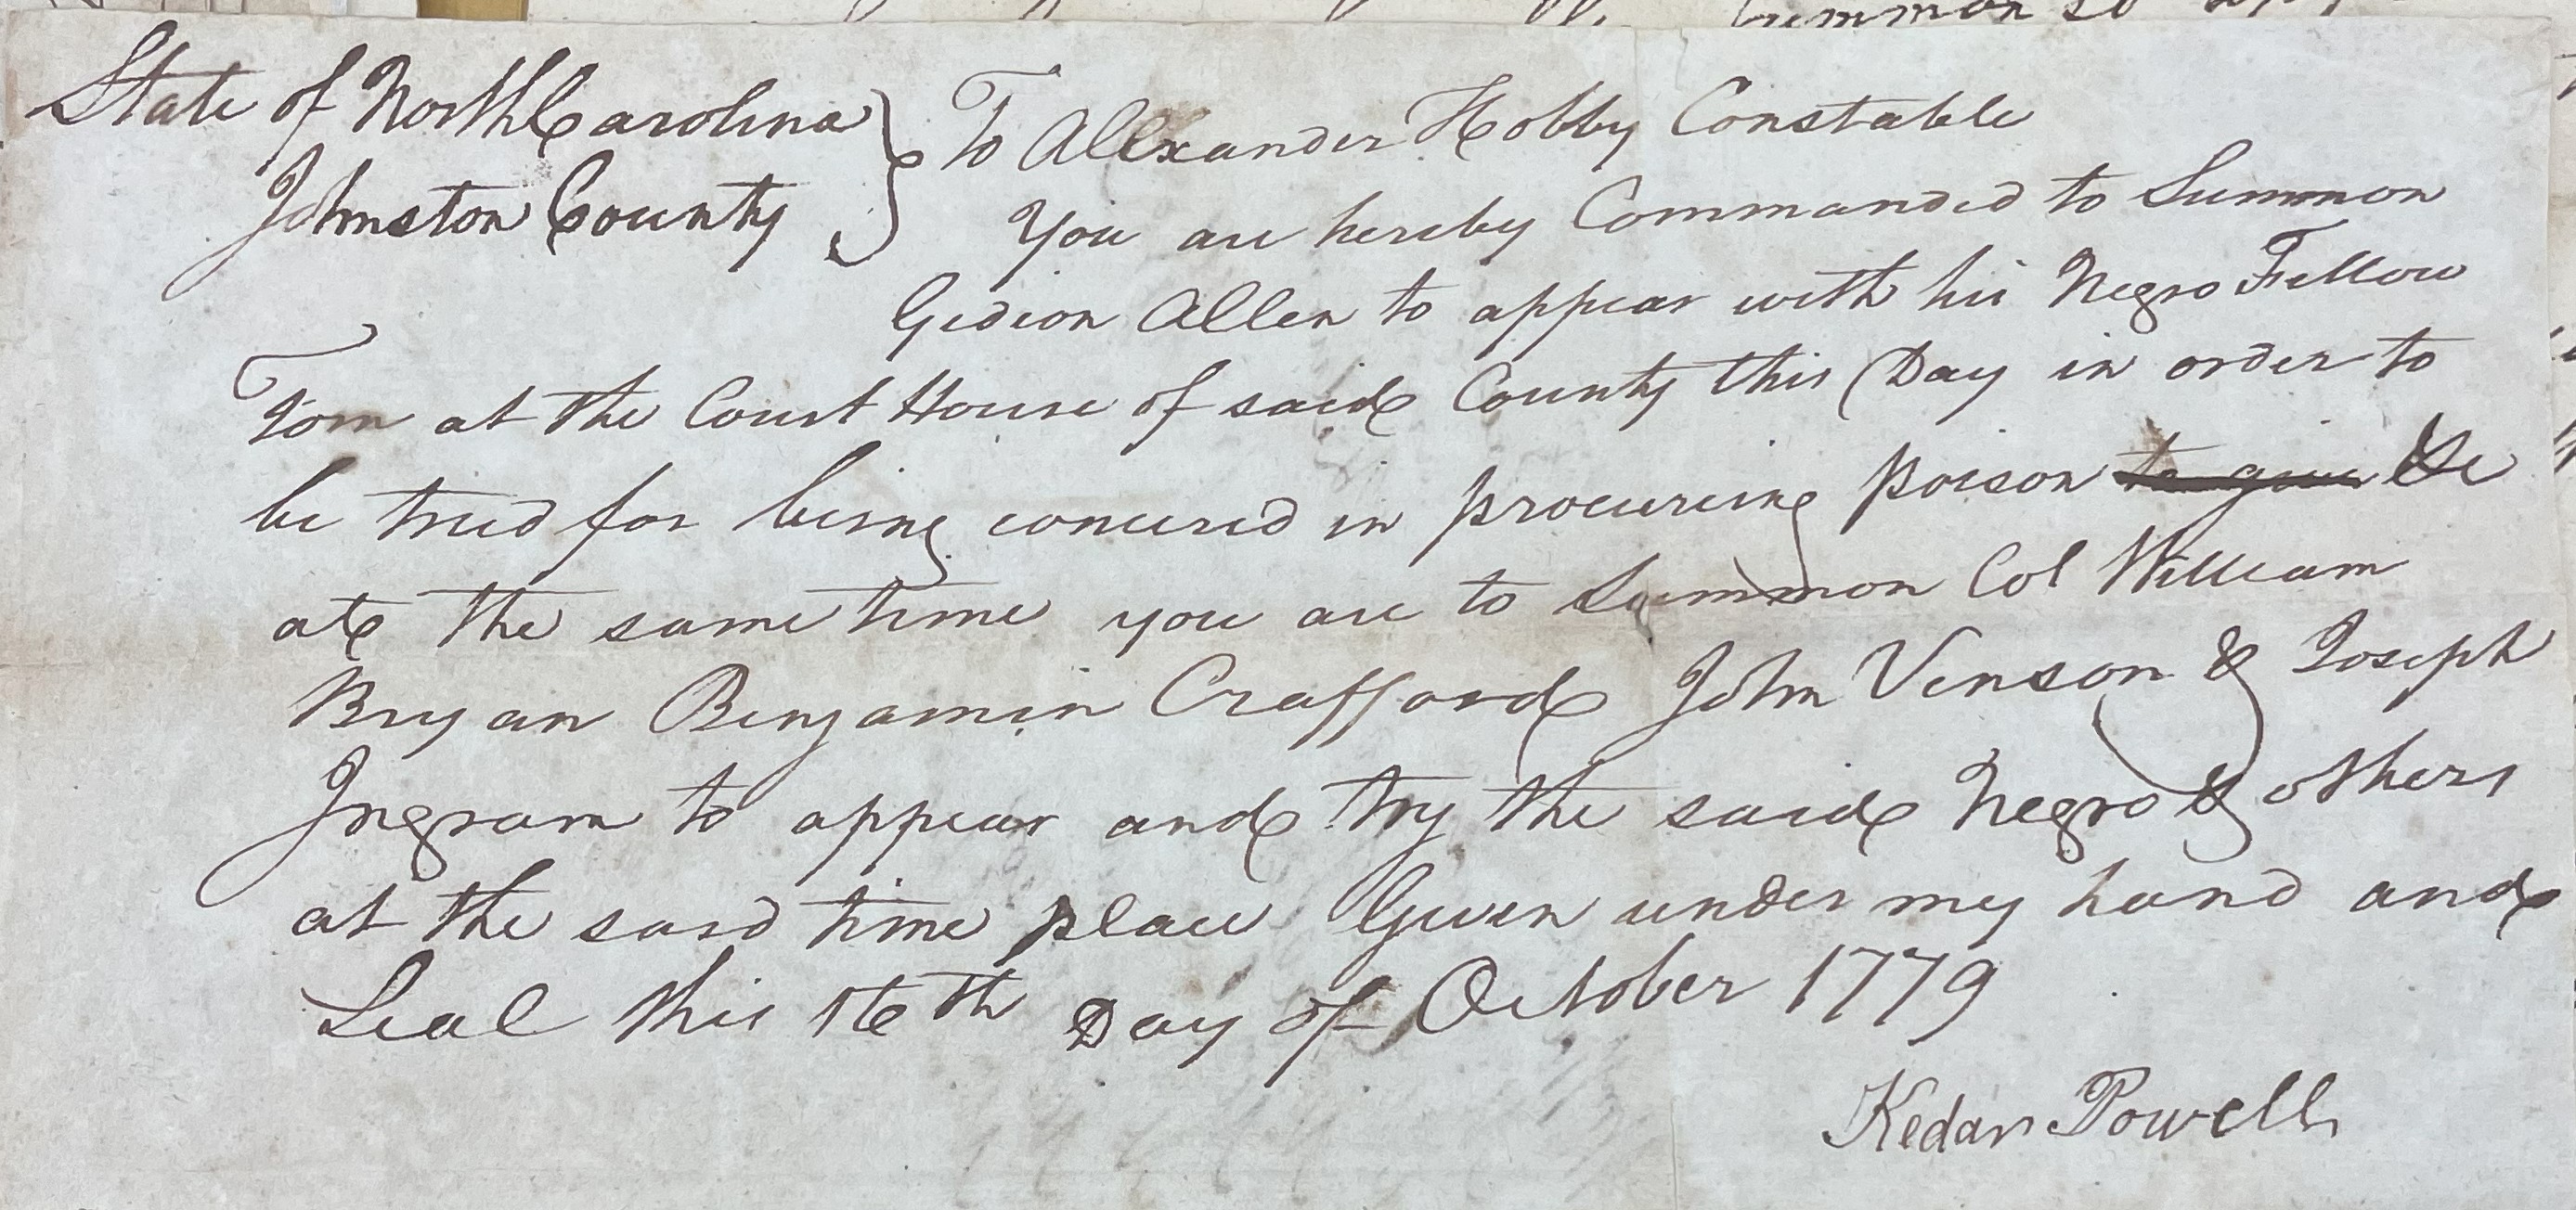 State of North Carolina } To Alexander Hobby Constable
Johnston County
You are hereby Commanded to Summon
Gedion Allen to appear with his Negro Fellow
Tom at the Court House of said County this Day in order to
be tried for being concerned in procureing poison to give &c
at the same time you are to Summon Col William
Bryan Benjamin Crafford John Vinson & Joseph
Ingram to appear and try the said Negro & others
at the said time place Given under my hand and
Seal this 16th Day of October 1779
Kedar Powell